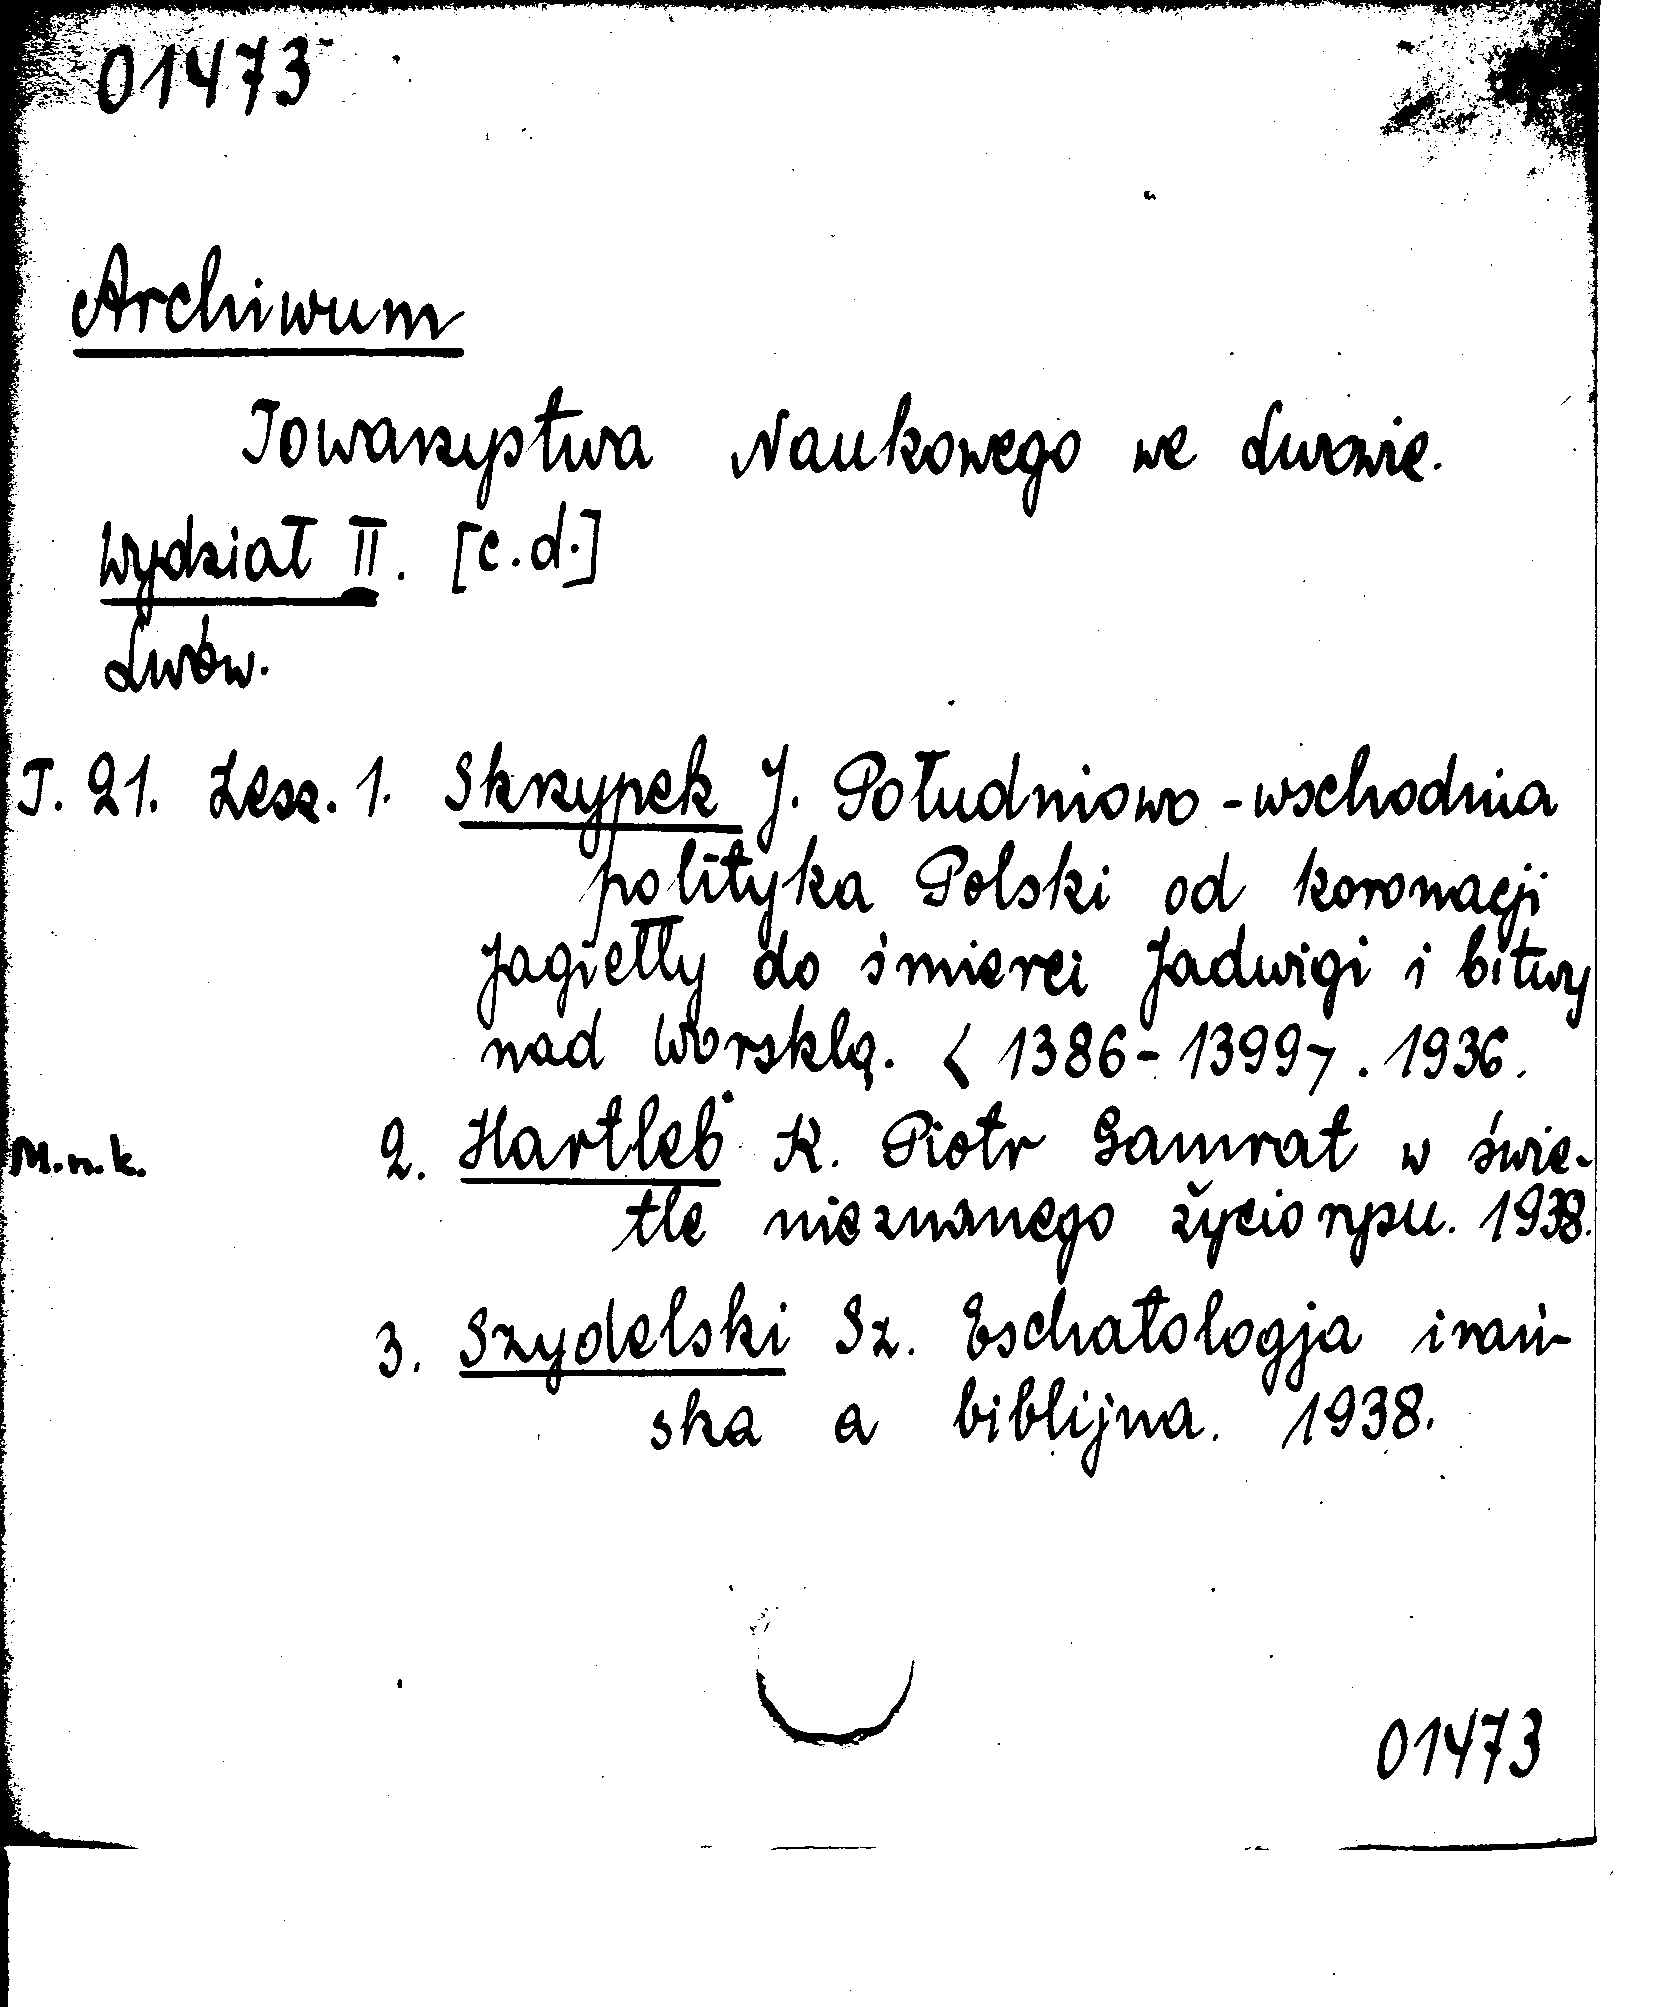 01473
Archiwum
Towarzystwa Naukowego we Lwowie.
Wydział II. [c.d.]
Lwów.
T. 21. Zesz. 1. Skrzypek J. Południowo-wschodnia
polityka Polski od koronacji
Jagiełły do śmierci Jadwigi i bitwy
nad Worsklą. <1386-1399>. 1936.
M.n.k. 2. Hartleb K. Piotr Gamrat w świe-
tle nieznanego życiorysu. 1938.
3. Szydelski Sz. Eschatologja irań-
ska a biblijna. 1938.
01473